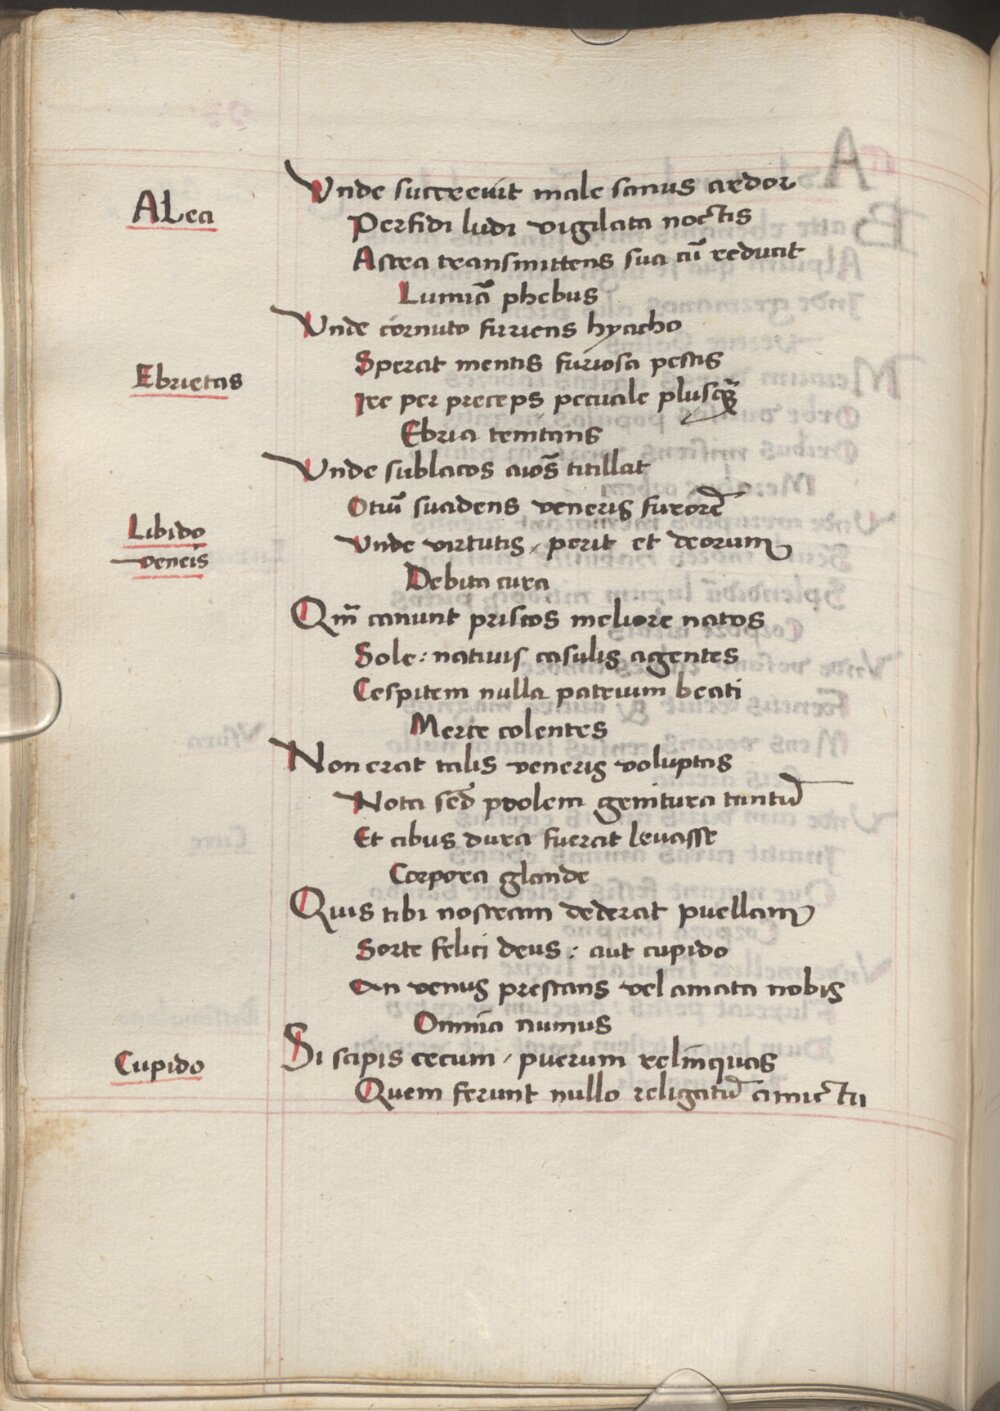 Vnde succreuit male sanus ardor
ALea
Perfidi ludi vigilata noctis
Astra transmittens sua cũ reducit
Lumĩa phebus
Vnde cornuto furiens hyacho
Sperat mentis furiosa pestis
Ebrietas
Ire per preceps peculale plusq̃
Ebria temtans
Vnde sublatos aĩos titillat
Otiũ suadens veneris furorẽ
Libido
veneris
Vnde virtutis, perit et deorum
Debita cura
Qm̃ canunt priscos meliore natos
Sole: natiuis casulis agentes
Cespitem nulla patrium beati
Merce colentes
Non erat talis veneris voluptas
Nota sed prolem genitura tantũ
Et cibus dura fuerat leuasse
Corpora glande
Quis tibi nostram dederat puellam
Sorte felici deus: aut cupido
An venus prestans vel amata nobis
Omnia numus
Si sapis cecum, puerum relinquas
Cupido
Quem ferunt nullo religatũ amictu